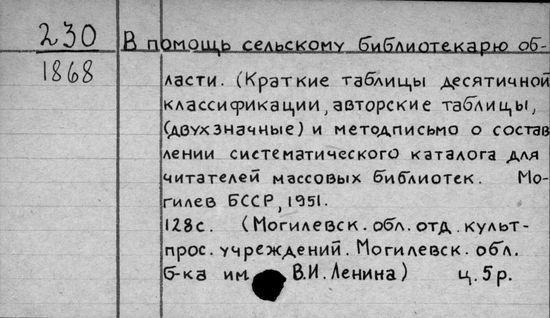 230 В помощь сельскому библиотекарю об-
1868 ласти. (Краткие таблицы десятичной
классификации, авторские таблицы,
(двухзначные) и методписьмо о состав
лении систематического каталога для
читателей массовых библиотек. Мо-
гилев БССР, 1951.
128с. (Могилевск. обл. отд. культ-
прос. учреждений. Могилевск. обл.
б-ка им В.И. Ленина) ц. 5 р.